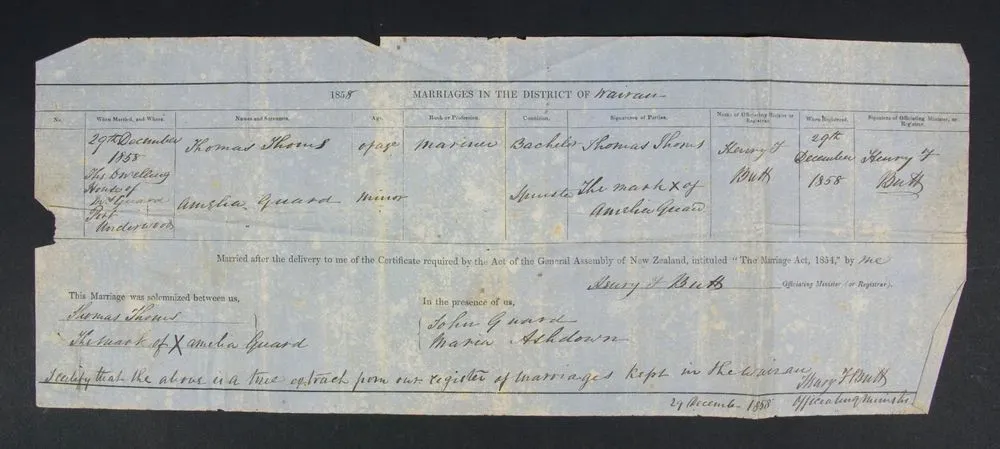 1858 MARRIAGES IN THE DISTRICT OF Wairau
No. When Married, and Where. Names and Surnames. Age. Rank or Profession. Condition. Signatures of Parties. Names of Officiating Minister or Registrar. When Registered. Signature of Officiating Minister, or Registrar.
29th December
1858
The Dwelling
House of
Mrs Guard
Port
Underwood
Thomas Thoms of age Mariner Bachelor Thomas Thoms
Henry F
Butt
29th
December
1858
Henry F
Butt
Amelia Guard Minor Spinster The mark X of
Amelia Guard
Married after the delivery to me of the Certificate required by the Act of the General Assembly of New Zealand, intituled "The Marriage Act, 1854," by me
Henry F Butt Officiating Minister (or Registrar).
This Marriage was solemnized between us,
Thomas Thoms
The mark of X Amelia Guard
In the presence of us,
John Guard
Maria Ashdown
I certify that the above is a true extract from our register of marriages kept in the Wairau
Henry F Butt
29 December 1858 Officiating Minister